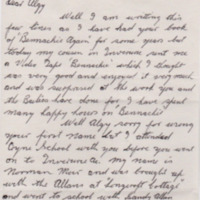 Dear Algy
Well I am writing this
few lines as I have had your book
of Bennachie Again for some years but
today my cousin in Inverurie sent me
a Video Tape "Bennachie" which I thought
was very good and enjoyed it very much
and was surprised at the work you and
the Bailies have done for I have spent
many happy hours on Bennachie
Well Algy sorry for using
your first name but I attended
Oyne School with you before you went
on to Inverurie as my name is
Norman Muir and was brought up
with the Allans at Cottage
and went to school with Sandy Allan